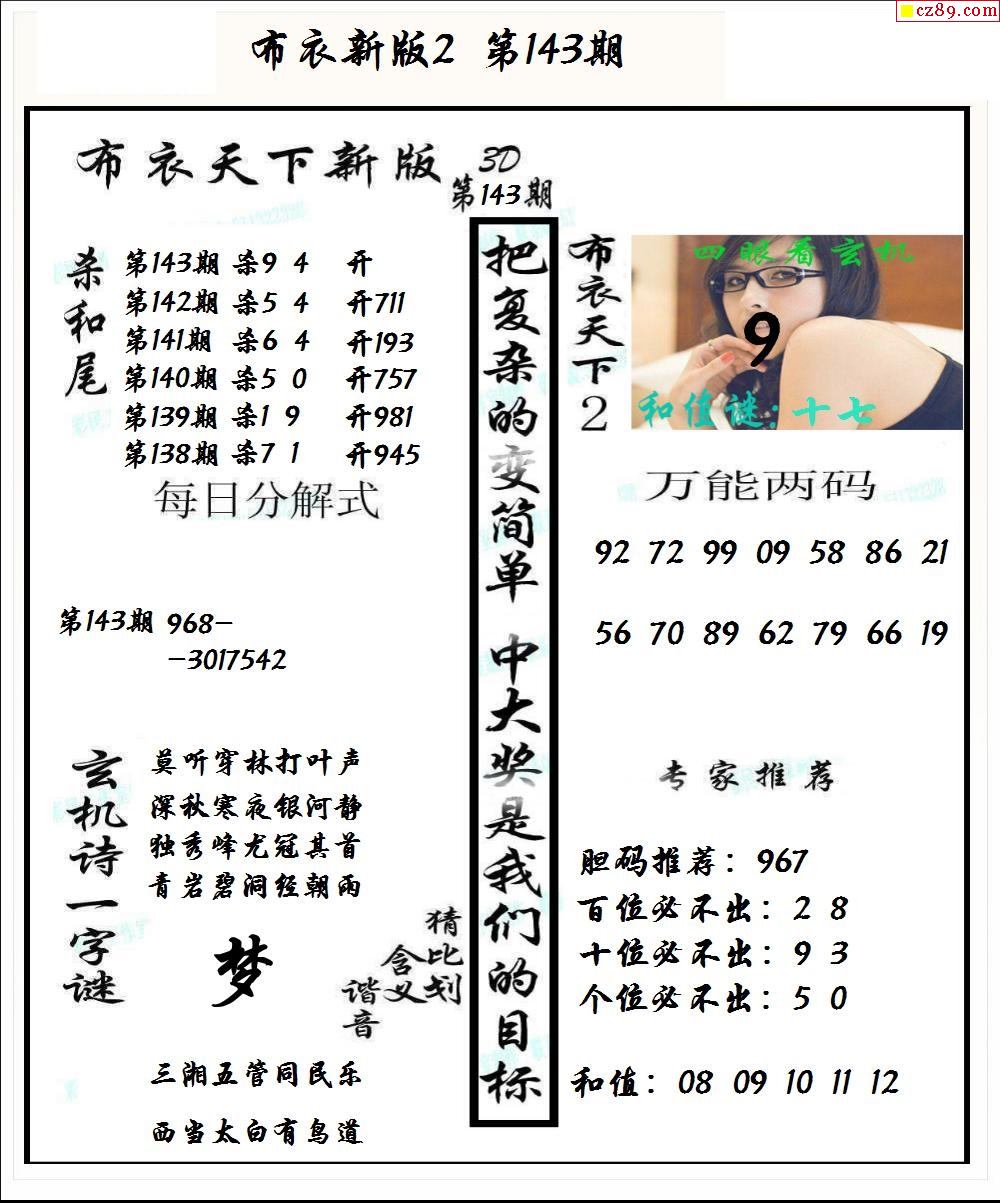 cz89.com
布衣新版2 第143期
布衣天下新版 3D
第143期
杀和尾
第143期 杀9 4 开
第142期 杀5 4 开711
第141期 杀6 4 开193
第140期 杀5 0 开757
第139期 杀1 9 开981
第138期 杀7 1 开945
每日分解式
第143期 968-
-3017542
玄机诗一字谜
莫听穿林打叶声
深秋寒夜银河静
独秀峰尤冠其首
青岩碧洞经朝雨
梦
猜比划
含义
谐音
三湘五管同民乐
西当太白有鸟道
把复杂的变简单 中大奖是我们的目标
布衣天下2
四眼看玄机
9
和值谜:十七
万能两码
92 72 99 09 58 86 21
56 70 89 62 79 66 19
专家推荐
胆码推荐：967
百位必不出：2 8
十位必不出：9 3
个位必不出：5 0
和值：08 09 10 11 12